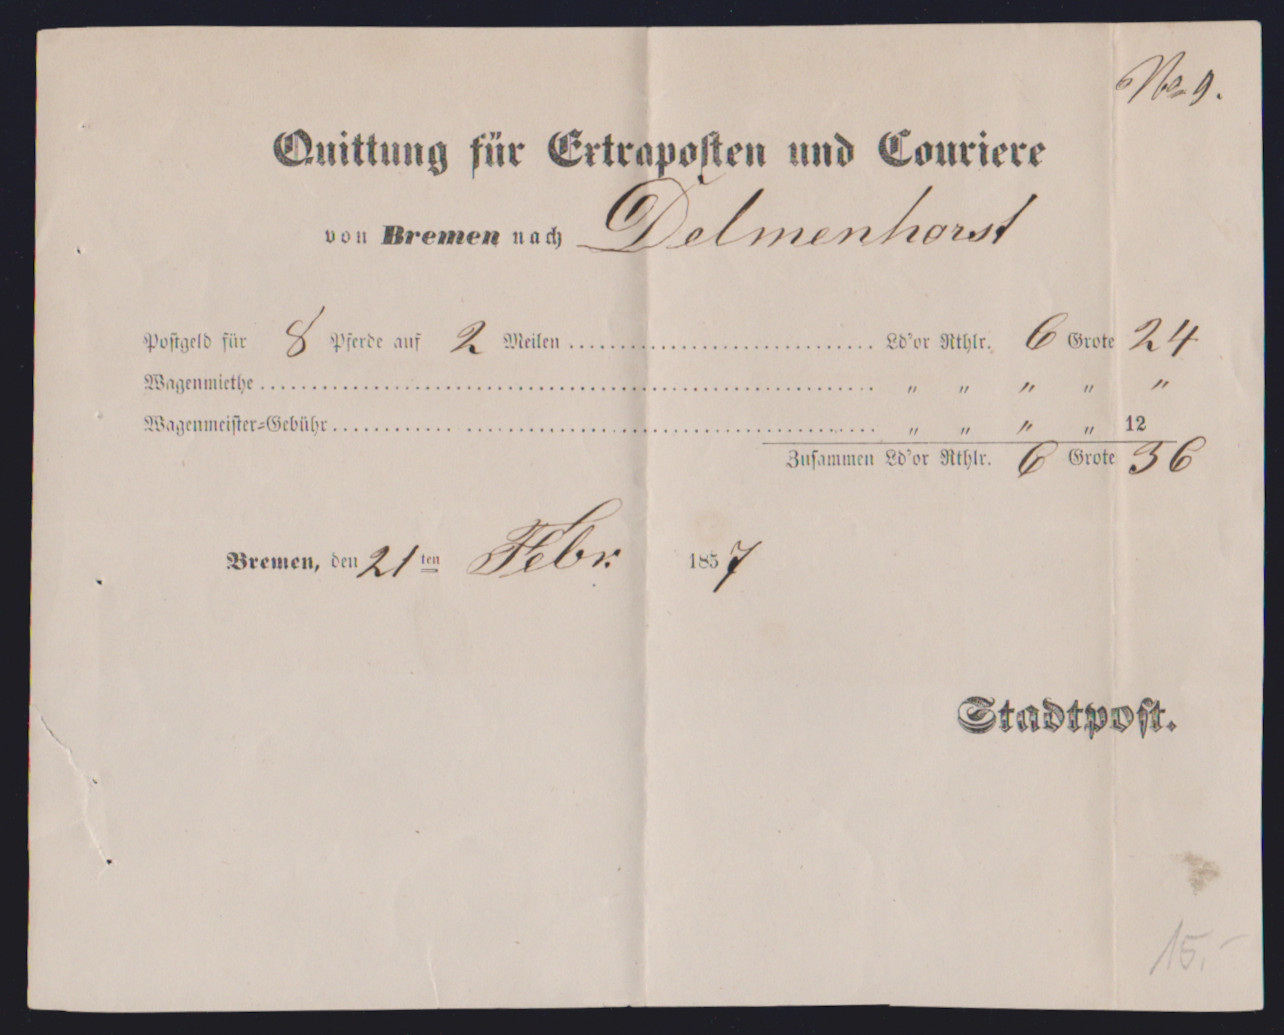 No 9.
Quittung für Extraposten und Couriere
von Bremen nach Delmenhorst
Postgeld für 8 Pferde auf 2 Meilen .............................. Ld'or Rthlr. 6 Grote 24
Wagenmiethe .............................................................. " " " " "
Wagenmeister-Gebühr ..................................................... " " " " 12
Zusammen Ld'or Rthlr. 6 Grote 36
Bremen, den 21 ten Febr. 1857
Stadtpost.
15,-